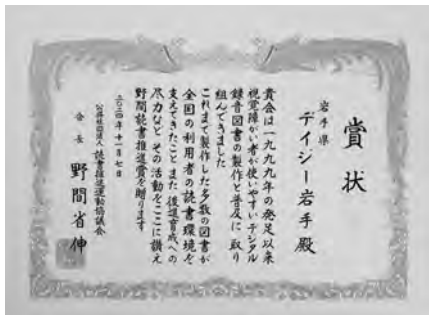 賞状
岩手県
デイジー岩手殿
貴会は一九九九年の発足以来
視覚障がい者が使いやすいデジタル
録音図書の製作と普及に取り
組んできました
これまで製作した多数の図書が
全国の利用者の読書環境を
支えてきたこと また後進育成への
尽力など その活動をここに讃え
野間読書推進賞を贈ります
二〇二四年十一月七日
公益社団法人 読書推進運動協議会
会長 野間省伸